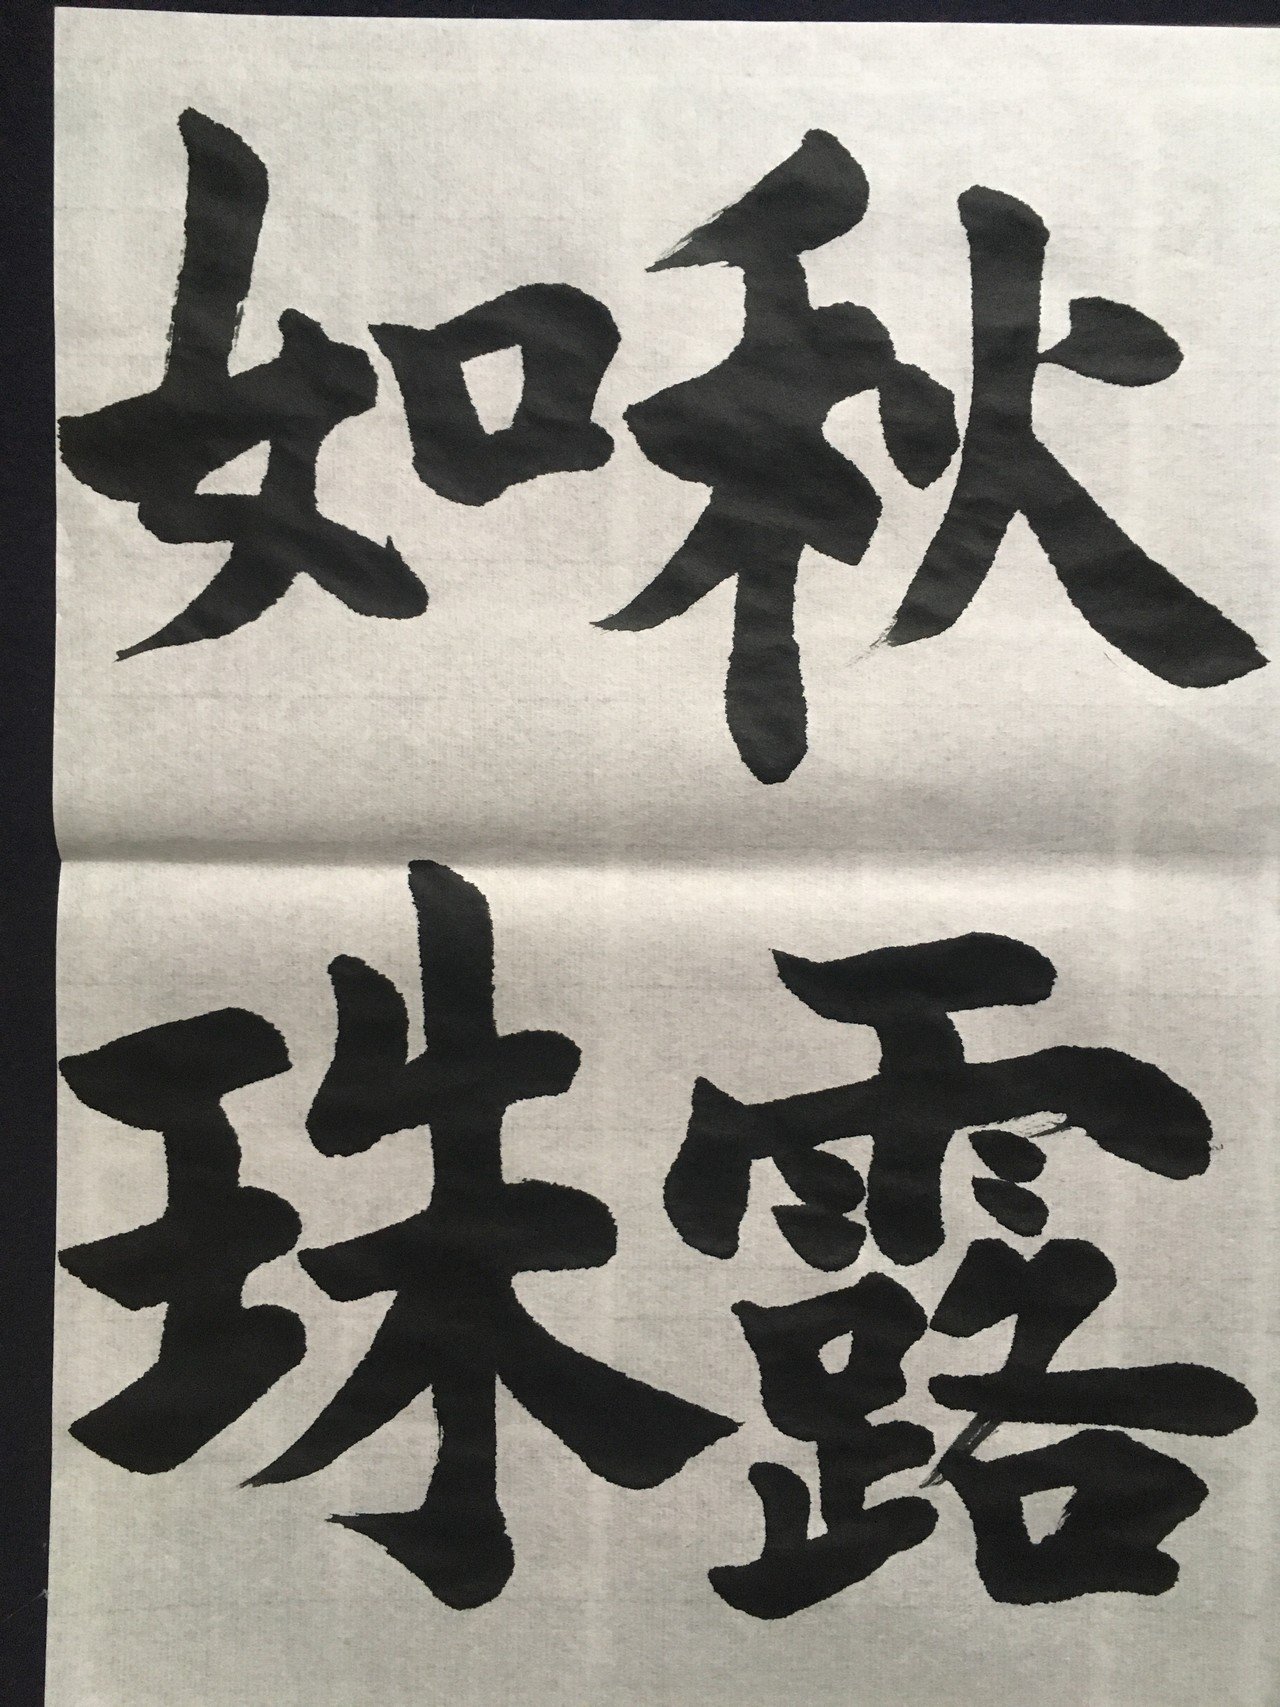 秋露
如珠